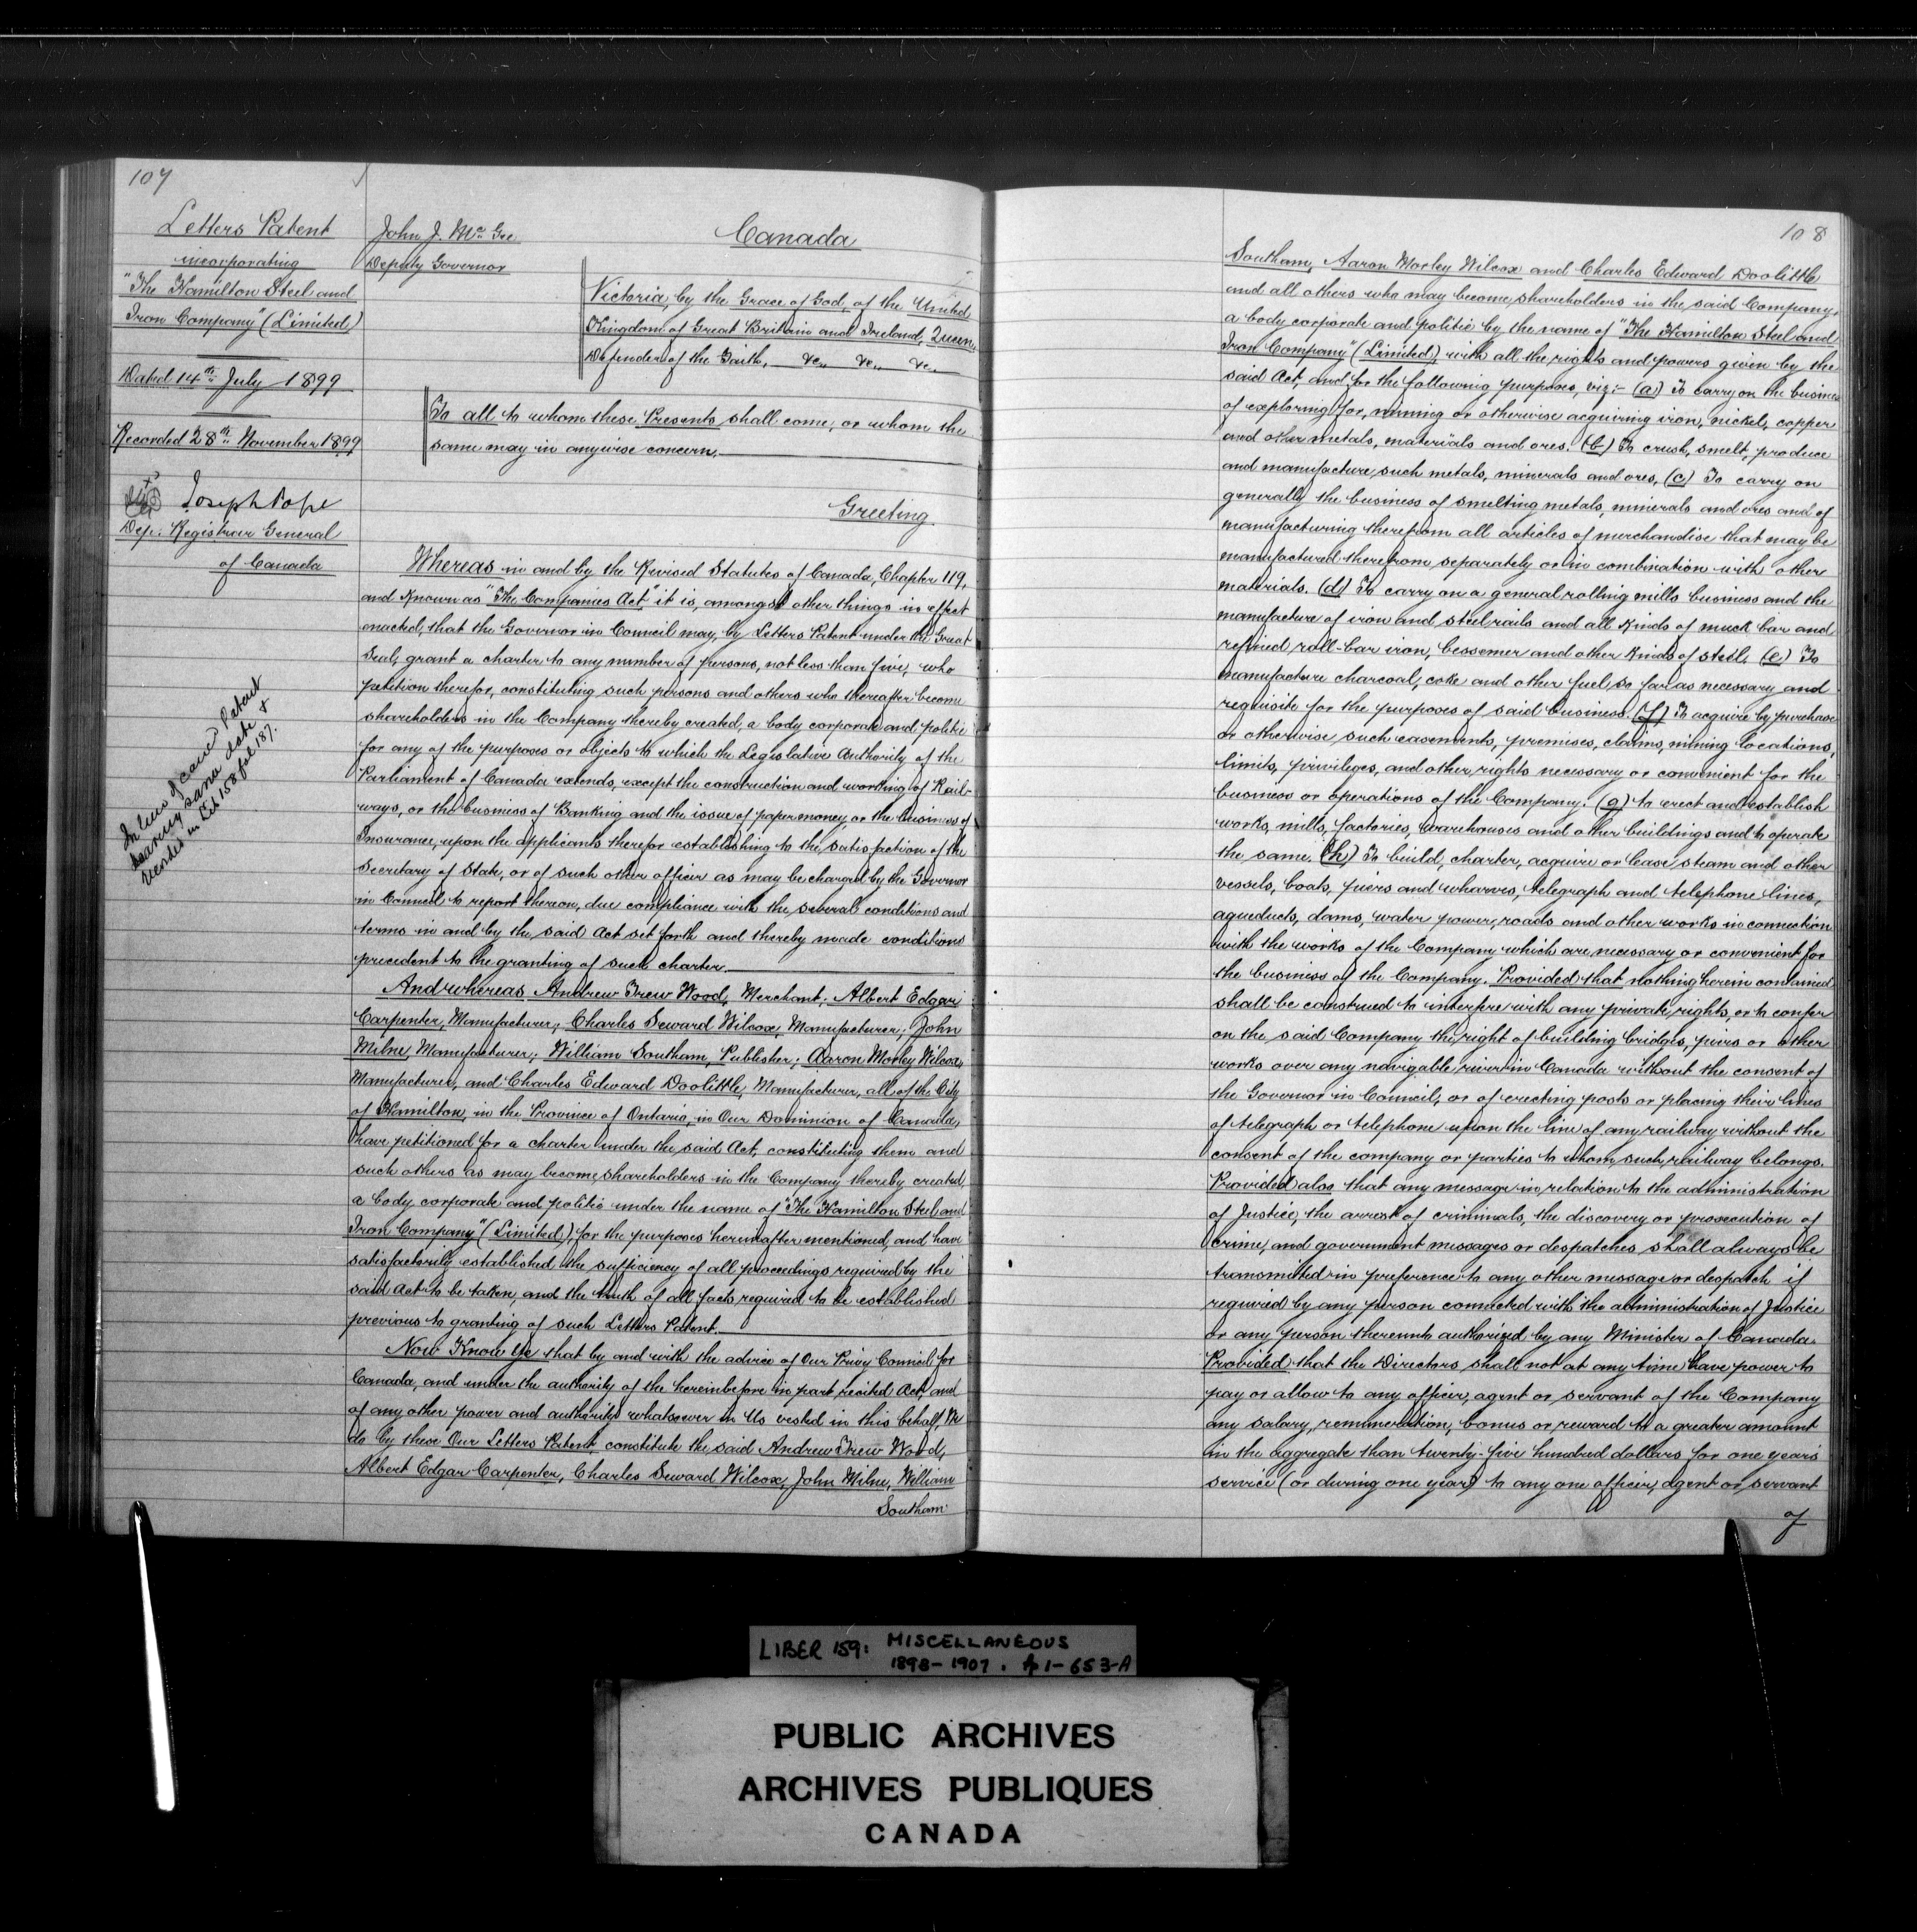 107
Letters Patent
incorporating
"The Hamilton Steel and
Iron Company" (Limited)
Dated 14th July 1899
Recorded 28th November 1899
Joseph Pope
Dep. Registrar General
of Canada
In lieu of cancd Patent
bearing same date &
recorded in Lib 158 fol 187.
John J. McGee
Deputy Governor
Canada
Victoria, by the Grace of God, of the United
Kingdom of Great Britain and Ireland, Queen,
Defender of the Faith, &c., &c., &c.,
To all to whom these Presents shall come, or whom the
same may in anywise concern,
Greeting.
Whereas in and by the Revised Statutes of Canada, Chapter 119,
and known as "The Companies Act" it is, amongst other things in effect
enacted, that the Governor in Council may, by Letters Patent under the Great
Seal, grant a charter to any number of persons, not less than five, who
petition therefor, constituting such persons and others who thereafter become
shareholders in the Company thereby created, a body corporate and politic
for any of the purposes or objects to which the Legislative Authority of the
Parliament of Canada extends, except the construction and working of Rail-
ways, or the business of Banking and the issue of paper money, or the business of
Insurance, upon the applicants therefor establishing to the satisfaction of the
Secretary of State, or of such other officer as may be charged by the Governor
in Council to report thereon, due compliance with the several conditions and
terms in and by the said Act set forth and thereby made conditions
precedent to the granting of such charter.
And whereas Andrew Trew Wood, Merchant; Albert Edgar
Carpenter, Manufacturer; Charles Seward Wilcox, Manufacturer; John
Milne, Manufacturer; William Southam, Publisher; Aaron Morley Wilcox,
Manufacturer, and Charles Edward Doolittle, Manufacturer, all of the City
of Hamilton, in the Province of Ontario, in Our Dominion of Canada,
have petitioned for a charter under the said Act, constituting them and
such others as may become shareholders in the Company thereby created,
a body corporate and politic under the name of "The Hamilton Steel and
Iron Company" (Limited), for the purposes hereinafter mentioned, and have
satisfactorily established the sufficiency of all proceedings required by the
said Act to be taken, and the truth of all facts required to be established
previous to granting of such Letters Patent.
Now Know Ye that by and with the advice of Our Privy Council for
Canada, and under the authority of the hereinbefore in part recited Act, and
of any other power and authority whatsoever in Us vested in this behalf, We
do by these Our Letters Patent, constitute the said Andrew Trew Wood,
Albert Edgar Carpenter, Charles Seward Wilcox, John Milne, William
Southam
108
Southam, Aaron Morley Wilcox and Charles Edward Doolittle
and all others who may become shareholders in the said Company,
a body corporate and politic by the name of "The Hamilton Steel and
Iron Company" (Limited) with all the rights and powers given by the
said Act, and for the following purposes, viz:- (a) To carry on the business
of exploring for, mining or otherwise acquiring iron, nickel, copper
and other metals, materials and ores. (b) To crush, smelt, produce
and manufacture such metals, minerals and ores, (c) To carry on
generally the business of smelting metals, minerals and ores and of
manufacturing therefrom all articles of merchandise that may be
manufactured therefrom separately or in combination with other
materials. (d) To carry on a general rolling mills business and the
manufacture of iron and steel rails and all kinds of muck bar and
refined roll-bar iron, bessemer and other kinds of steel. (e) To
manufacture charcoal, coke and other fuel, so far as necessary and
requisite for the purposes of said business. (f) To acquire by purchase
or otherwise such easements, premises, claims, mining locations,
limits, privileges, and other rights necessary or convenient for the
business or operations of the Company. (g) to erect and establish
works, mills, factories, warehouses and other buildings and to operate
the same. (h) To build, charter, acquire or lease steam and other
vessels, boats, piers and wharves, telegraph and telephone lines,
aqueducts, dams, water power, roads and other works in connection
with the works of the Company which are necessary or convenient for
the business of the Company. Provided that nothing herein contained
shall be construed to interfere with any private rights, or to confer
on the said Company the right of building bridges, piers or other
works over any navigable river in Canada without the consent of
the Governor in Council, or of erecting posts or placing their lines
of telegraph or telephone upon the line of any railway without the
consent of the company or parties to whom such railway belongs.
Provided also that any message in relation to the administration
of Justice, the arrest of criminals, the discovery or prosecution of
crime, and government messages or despatches shall always be
transmitted in preference to any other message or despatch if
required by any person connected with the administration of Justice
or any person thereunto authorized by any Minister of Canada.
Provided that the Directors shall not at any time have power to
pay or allow to any officer, agent or servant of the Company
any salary, remuneration, bonus or reward to a greater amount
in the aggregate than twenty-five hundred dollars for one year's
service (or during one year) to any one officer, agent or servant
of
LIBER 159: MISCELLANEOUS
1898-1907. pp 1-653-A
PUBLIC ARCHIVES
ARCHIVES PUBLIQUES
CANADA